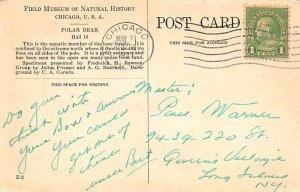 FIELD MUSEUM OF NATURAL HISTORY
CHICAGO, U. S. A.
POLAR BEAR
Hall 16
This is the aquatic member of the bear family. It is
confined to the extreme north where it dwells mostly on
floes at all sides of the pole. It is a great swimmer and
has been seen in the open sea many miles from land.
Specimen presented by Frederick H. Rawson.
Group by Julius Friesser and A. G. Rueckert. Background
by C. A. Corwin.
THIS SPACE FOR WRITING
Do you
think with
your Box & Camera
you could
get one of
these
Bert
Z-2
POST CARD
THIS SIDE FOR ADDRESS
CHICAGO
1 CENT 1
Master:
Paul Warner
94-39-220 St
Queens Village
Long Island
N.Y.